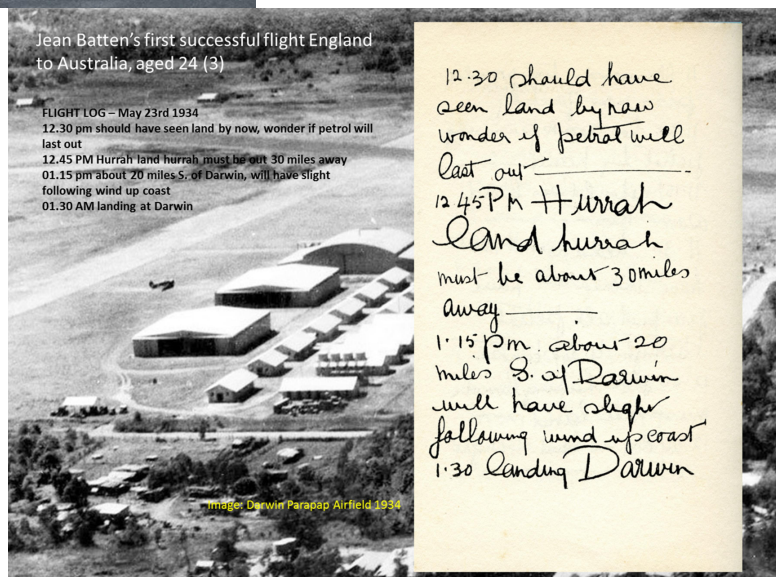 Jean Batten's first successful flight England
to Australia, aged 24 (3)
FLIGHT LOG – May 23rd 1934
12.30 pm should have seen land by now, wonder if petrol will
last out
12.45 PM Hurrah land hurrah must be out 30 miles away
01.15 pm about 20 miles S. of Darwin, will have slight
following wind up coast
01.30 AM landing at Darwin
Image: Darwin Parapap Airfield 1934
12.30 should have
seen land by now
wonder if petrol will
last out
12 45 PM Hurrah
land hurrah
must be about 30 miles
away
1.15 pm. about 20
miles S. of Darwin
will have slight
following wind up coast
1.30 landing Darwin